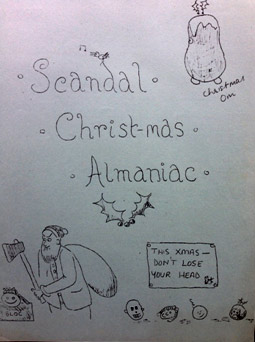 Scandal
Christmas
Om
Christ-mas
Almaniac
THIS XMAS —
DON'T LOSE
YOUR HEAD